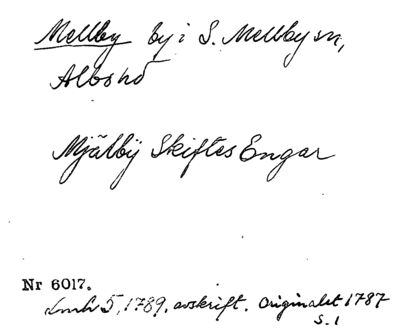 Mellby by i S. Mellby sn,
Albo hd
Mjälbÿ Skiftes Engar
Nr 6017.
Lmh 5, 1789, avskrift. Originalet 1787
S. 1